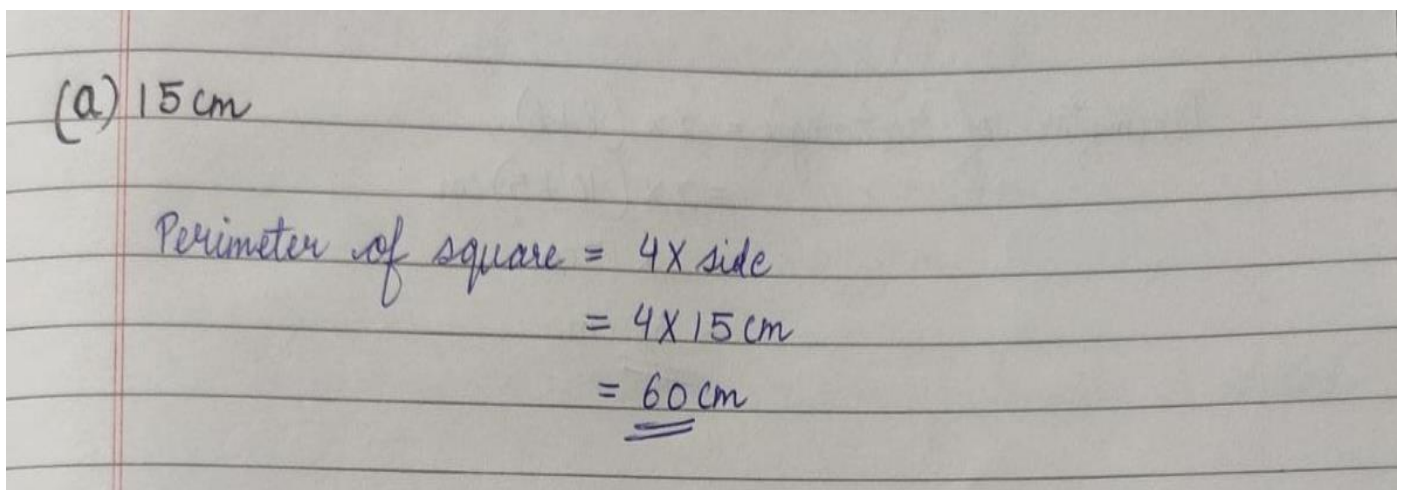 (a) 15 cm
Perimeter of square = 4 × side
= 4 × 15 cm
= 60 cm